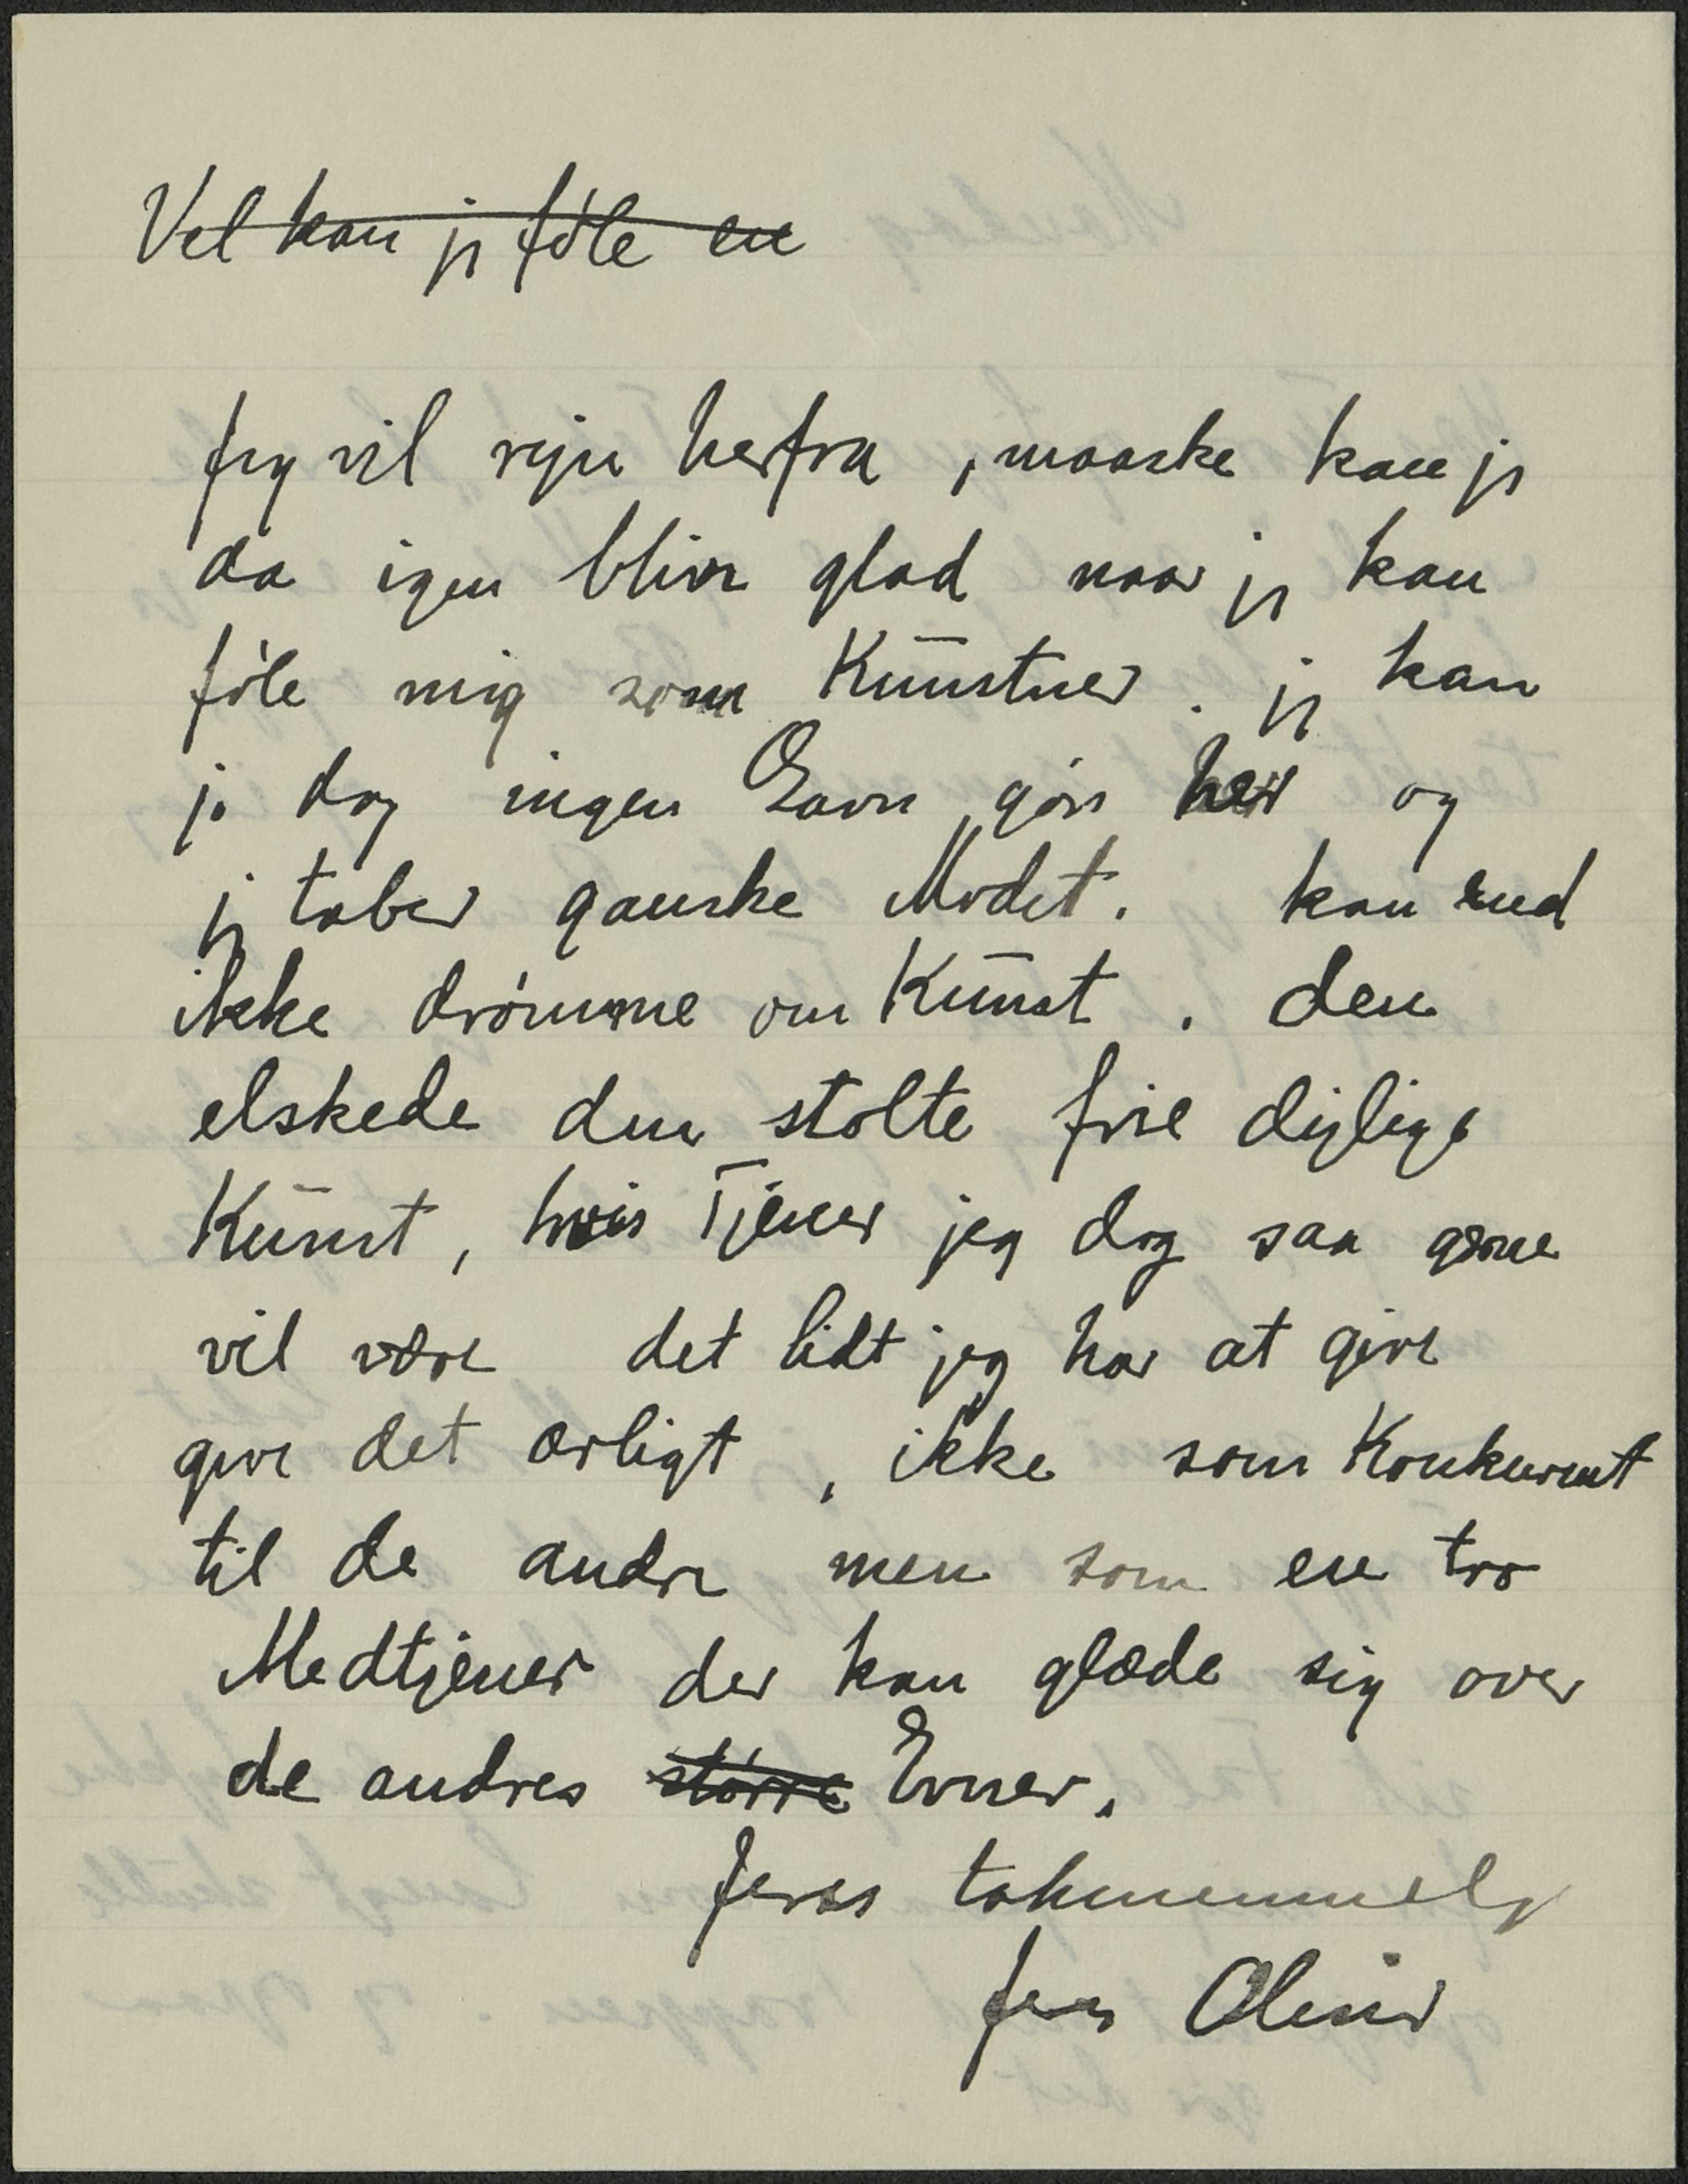 Vel kan jg föle en
Jeg vil rejse herfra, maaske kan jg
da igen blive glad naar jg kan
föle mig som Kunstner. jg kan
jo dog ingen Gavn göre her og
jg taber ganske Modet. kan end
ikke drömme om Kunst. den
elskede den stolte frie dejlige
Kunst, hvis Tjener jeg dog saa gærne
vil være det lidt jeg har at give
give det ærligt, ikke som Konkurrent
til de andre men som en tro
Medtjener der kan glæde sig over
de andres större Evner.
Jeres taknemmelige
Jens Olius